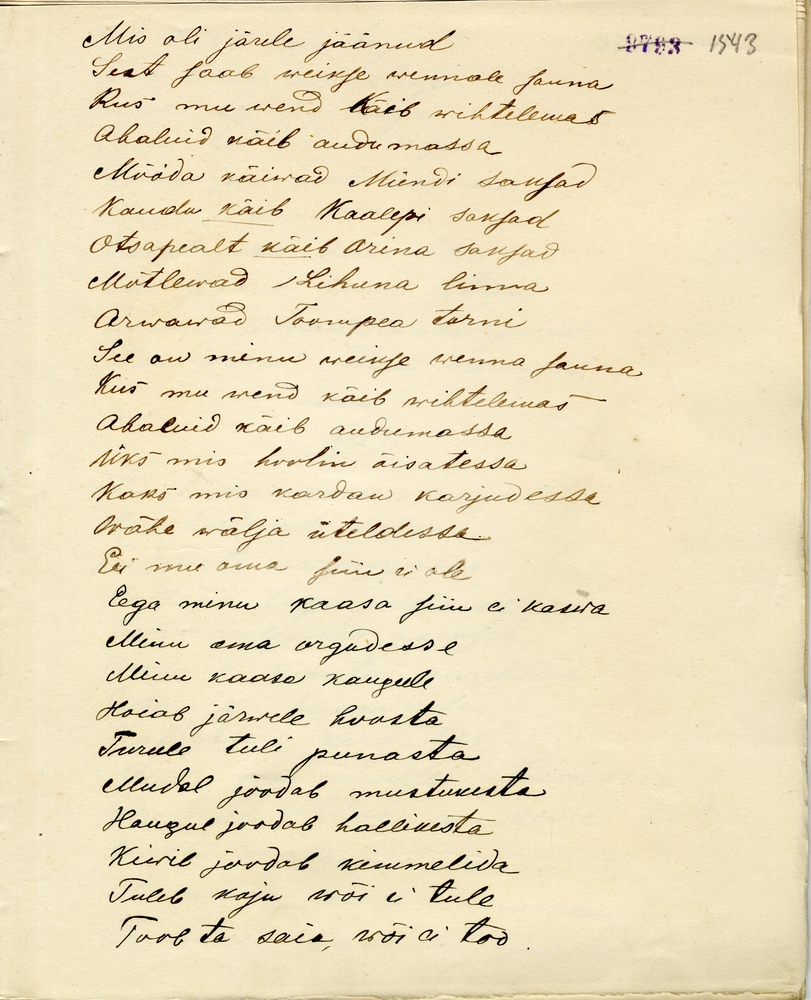 Mis oli järele jäänud
9783 1543
Seat saab weikse wennale sauna
Kus mu wend käib wihtelemas
Abaluid käib audumassa
Mööda käiwad Mündi saksad
Kaudu käib Kaalepi saksad
Otsapealt käib Orina saksad
Mõtlewad Lihuna linna
Arwawad Toompea torni
See on minu weikse wenna sauna
Kus mu wend käib wihtelemas
Abaluid käib audumassa
Üks mis hoolin õisatessa
Kaks mis kardan karjudessa
Wähe wälja üteldessa
Ei mu oma siin ei ole
Eega minu kaasa siin ei kaswa
Minu oma orgudesse
Minu kaasa kaugele
Hoiab järwele hoosta
Turule tuli punasta
Mudal joodab mustukesta
Haugul joodab hallikesta
Kiwil joodab kimmelida
Tuleb koju wõi ei tule
Toob ta saia, wõi ei too.